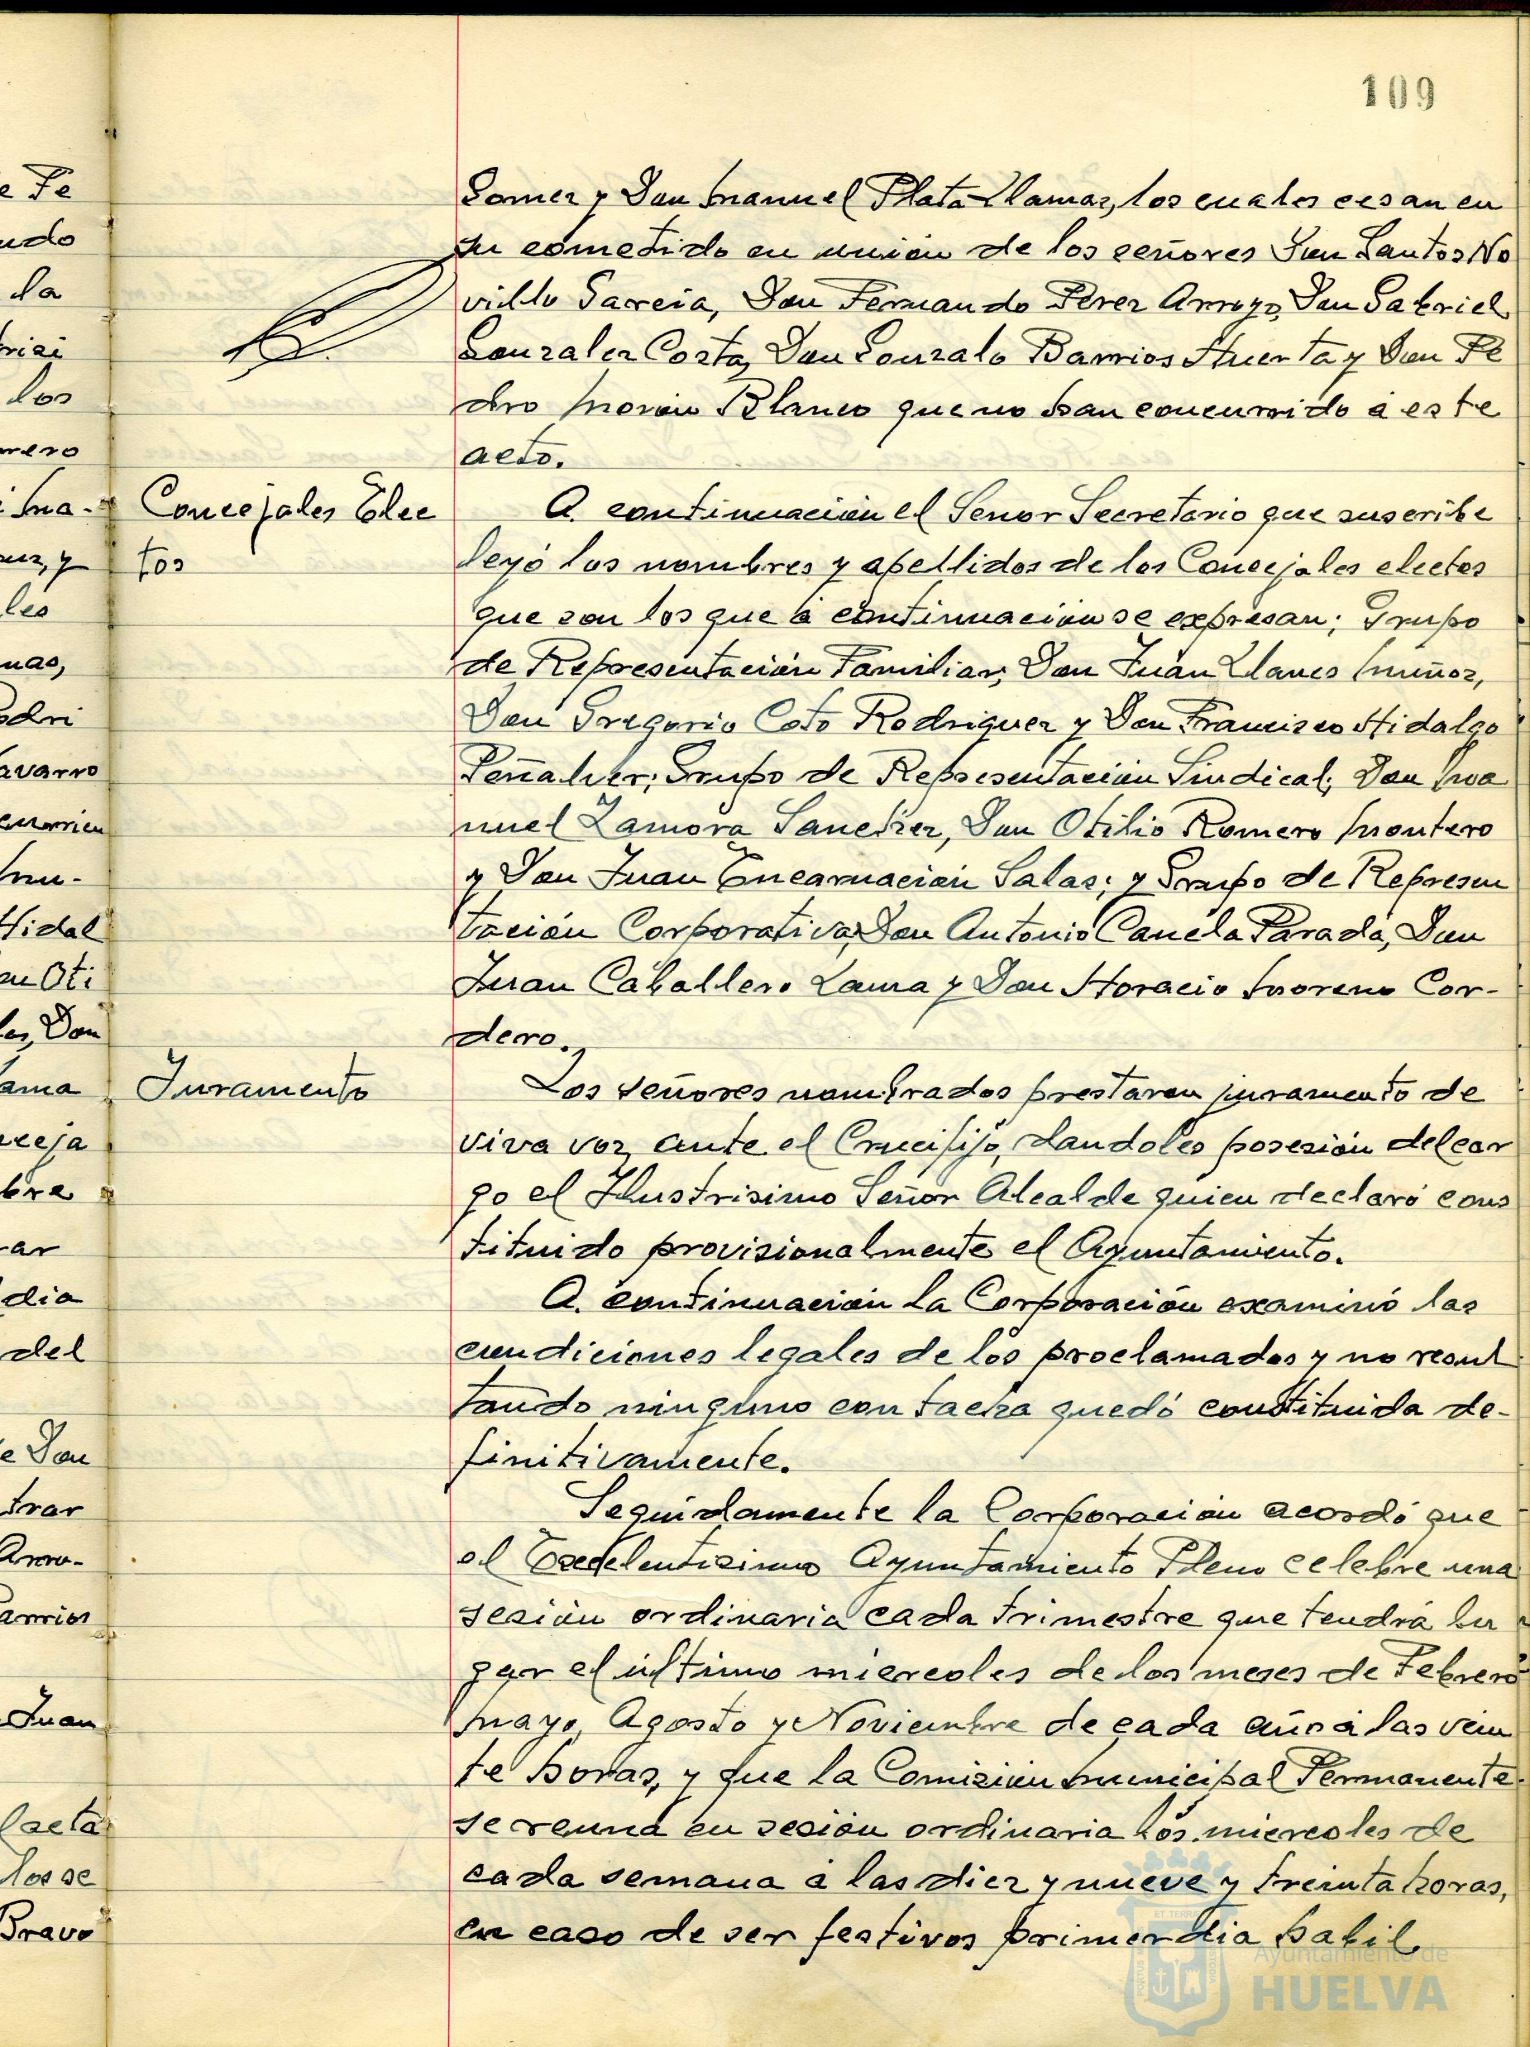 109
Gomez y Don Manuel Plata Llamas, los cuales cesan en
su cometido en unión de los señores Don Santos No
villo Garcia, Don Fernando Perez Arroyo, Don Gabriel
Gonzalez Costa, Don Gonzalo Barrios Huerta y Don Pe
dro Morón Blanco que no han concurrido á este
acto.
Concejales Elec
tos
A continuación el Señor Secretario que suscribe
leyó los nombres y apellidos de los Concejales electos
que son los que á continuación se expresan; Grupo
de Representación Familiar, Don Juan Llanes Muñoz,
Don Gregorio Coto Rodriguez y Don Francisco Hidalgo
Peñalver; Grupo de Representación Sindical; Don Ma
nuel Zamora Sanchez, Don Otilio Romero Montero
y Don Juan Encarnación Salas; y Grupo de Represen
tación Corporativa, Don Antonio Canela Parada, Don
Juan Caballero Lama y Don Horacio Moreno Cor-
dero.
Juramento
Los señores nombrados prestaron juramento de
viva voz ante el Crucifijo, dandoles posesión del car
go el Ilustrisimo Señor Alcalde quien declaró cons
tituido provisionalmente el Ayuntamiento.
A continuación la Corporación examinó las
condiciones legales de los proclamados y no resul
tando ninguno con tacha quedó constituida de-
finitivamente.
Seguidamente la Corporación acordó que
el Excelentisimo Ayuntamiento Pleno celebre una
sesión ordinaria cada trimestre que tendrá lu
gar el último miercoles de los meses de Febrero
Mayo, Agosto y Noviembre de cada año á las vein
te horas, y que la Comisión Municipal Permanente
se reuna en sesión ordinaria los miercoles de
cada semana á las diez y nueve y treinta horas,
en caso de ser festivos primer dia habil
e Pe
ndo
la
los
rero
i Ma-
les
Hidal
n Oti
Don
ama
nceja
bre
rar
dia
del
e Don
trar
Juan
los se
Bravo
Ayuntamiento de
HUELVA